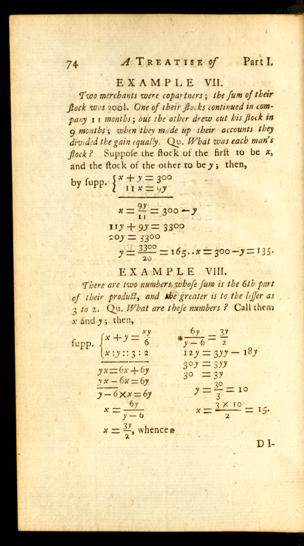 74 A TREATISE of Part I.
EXAMPLE VII.
Two merchants were copartners; the sum of their
ſtock was 300l. One of their ſtocks continued in com-
pany 11 months; but the other drew out his ſtock in
9 months; when they made up their accounts they
divided the gain equally. Qu. What was each man's
ſtock? Suppoſe the ſtock of the firſt to be x,
and the ſtock of the other to be y; then,
by ſupp. { x + y = 300
11x = 9y
x = 9y/11 = 300 − y
11y + 9y = 3300
20y = 3300
y = 3300/20 = 165..x = 300 − y = 135.
EXAMPLE VIII.
There are two numbers whoſe ſum is the 6th part
of their product, and the greater is to the leſſer as
3 to 2. Qu. What are theſe numbers? Call them
x and y; then,
ſupp. { x + y = xy/6
x : y :: 3 : 2
yx = 6x + 6y
yx − 6x = 6y
y − 6 × x = 6y
x = 6y/y − 6
x = 3y/2, whence *
* 6y/y − 6 = 3y/2
12y = 3yy − 18y
30y = 3yy
30 = 3y
y = 30/3 = 10
x = 3 × 10/2 = 15.
D I-